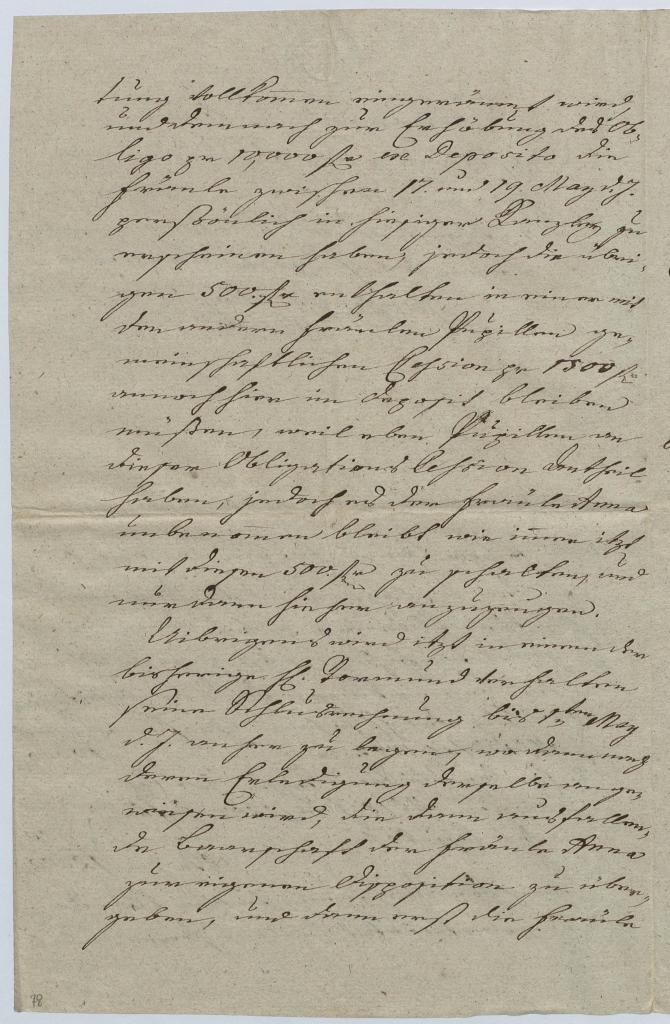 tung vollkommen eingeräumt wird,
und demnach zur Erhöbung des Ob-
ligo pr 10,000 fr ex Deposito die
Fräule zwischen 17. und 19. May d. J.
persönlich in hiesiger Kanzley zu
erscheinen haben, jedoch die übri-
gen 500 fr enthalten in einer mit
den andern Fräulen Pupillen ge-
meinschaftlichen Cession pr 1500 fr
annoch hier im Deposit bleiben
müßen, weil eben Pupillen an
dieser Obligations Cession Antheil
haben, jedoch es der Fräule Anna
unbenommen bleibt wie immer itzt
mit diesen 500 fr zu schalten, und
nur dann hieher anzuzeugen.
Uibrigens wird itzt in einem der
bisherige H. Vormund verhalten
seine Schlusrechnung bis 1ten May
d. J. anher zu legen, wo dann nach
deren Erledigung derselbe ange-
wiesen wird, die dann ausfallen-
de Baarschaft der Fräule Anna
zur eigenen Disposition zu über-
geben, und dann erst die Fräule
78